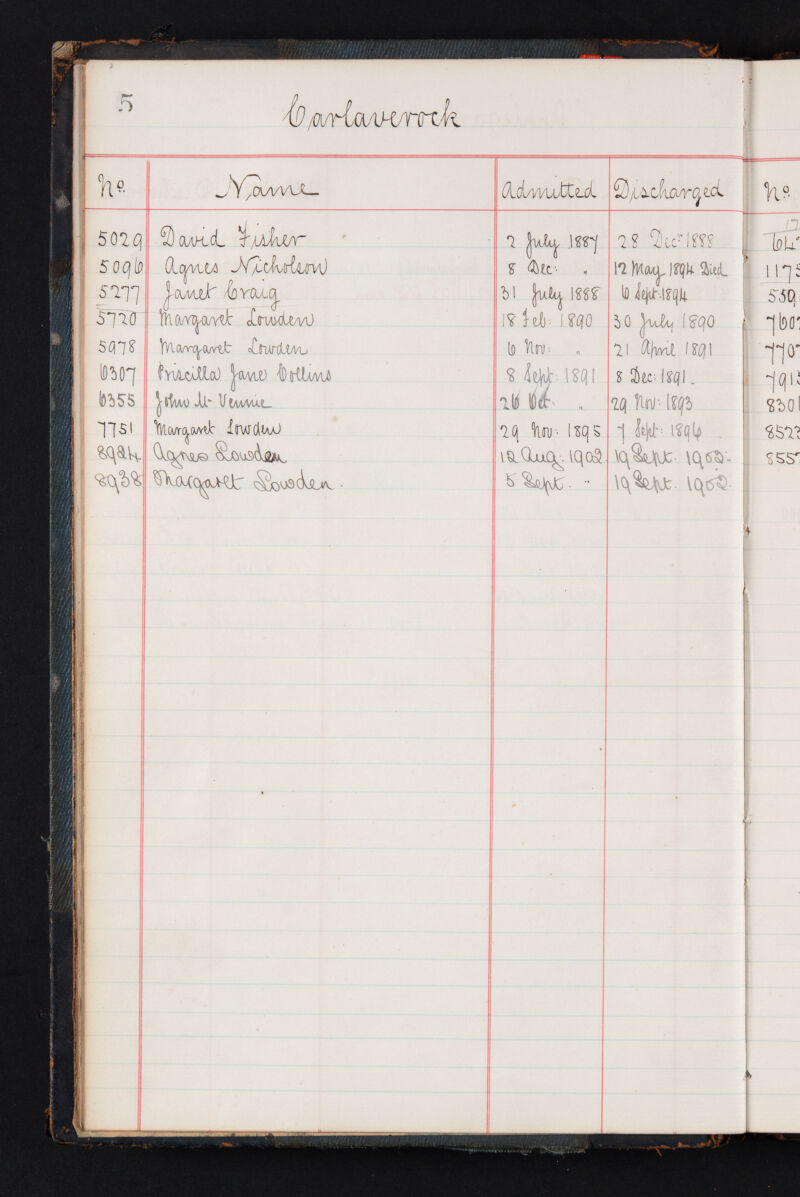 5 Carlaverock
No. Name Admitted Discharged No.
5029 David Fisher 2 July 1887 28 Decr 1888
5096 Agnes Nicholson 8 Dec: " 12 May 1894 Died 1175
5277 Janet Craig 31 July 1888 6 Sept: 1894 559
5720 Margaret Lowden 18 Feb: 1890 30 July 1890 760
5978 Margaret Lowden 6 Nov: " 21 April 1891 770
6307 Priscilla Jane Collins 8 Sept: 1891 8 Dec: 1891. 791
6355 John Mc Vennie 26 Oct: " 29 Nov: 1893 830
7751 Margaret Lowden 29 Nov: 1895 7 Sept: 1896 852
8924 Agnes Lowden 12 Aug. 1902 19 Sept. 1902. 855
8938 Margaret Lowden. 5 Sept. " 19 Sept. 1902.